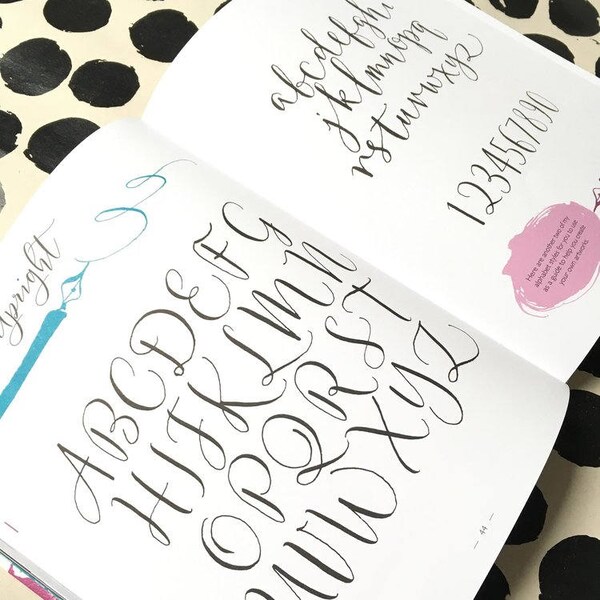 upright
ABCDEFG
HIJKLMN
OPQRST
UVWXYZ
44
abcdefghi
jklmnopq
rstuvwxyz
1234567890
Here are another two of my
alphabet styles for you to use
as a guide to help you create
your own artworks.